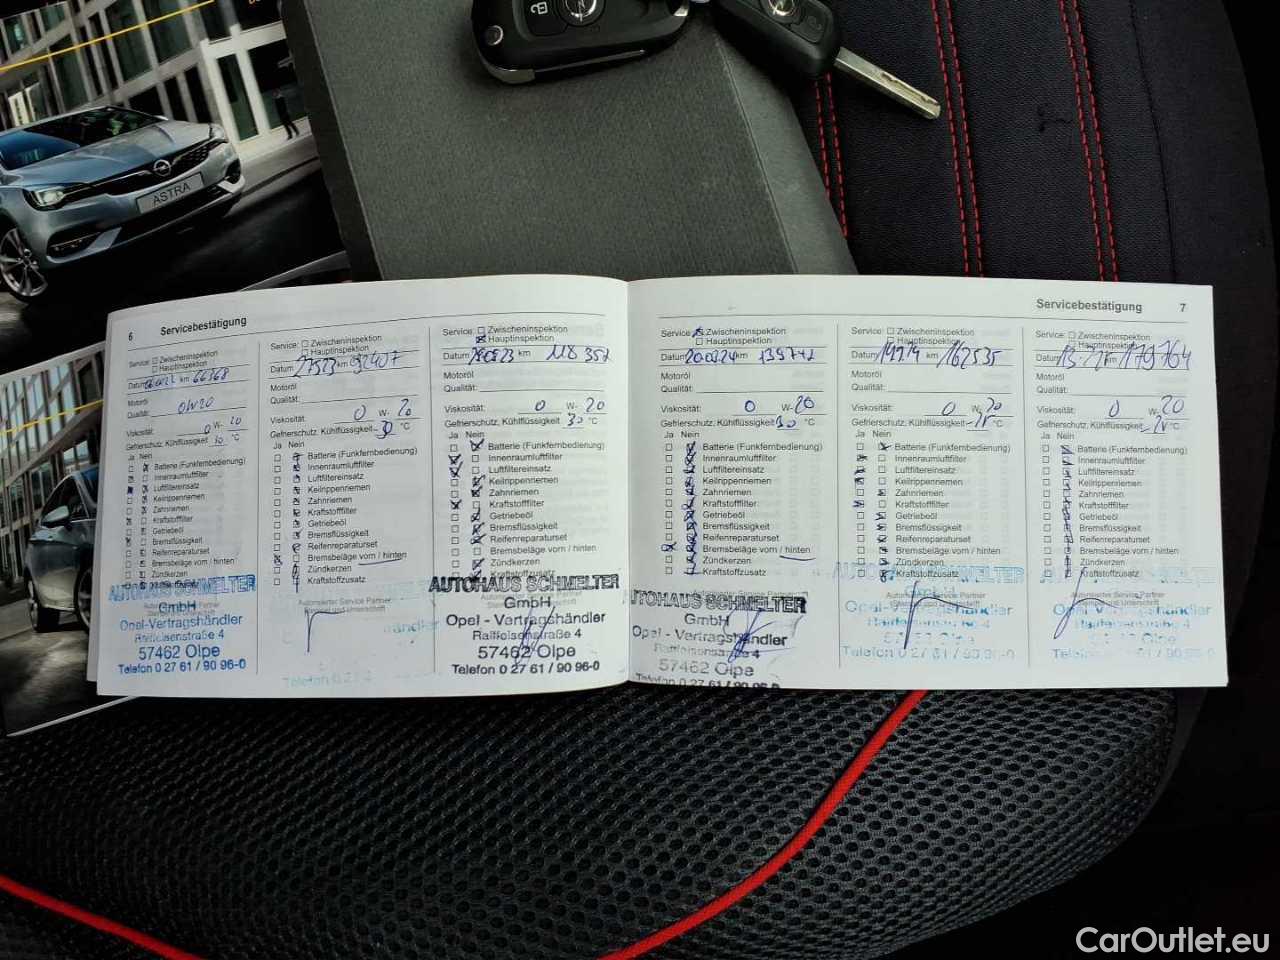 ASTRA
6 Servicebestätigung
Service: ☐ Zwischeninspektion
☐ Hauptinspektion
Datum km 66368
Motoröl
Qualität: 0W20
Viskosität: 0 W- 20
Gefrierschutz, Kühlflüssigkeit 30 °C
Ja Nein
Batterie (Funkfernbedienung)
Innenraumluftfilter
Luftfiltereinsatz
Keilrippenriemen
Zahnriemen
Kraftstofffilter
Getriebeöl
Bremsflüssigkeit
Reifenreparaturset
Bremsbeläge vorn / hinten
Zündkerzen
AUTOHAUS SCHMELTER
GmbH
Opel-Vertragshändler
Raiffeisenstraße 4
57462 Olpe
Telefon 0 27 61 / 90 96-0
Service: ☐ Zwischeninspektion
☐ Hauptinspektion
Datum 27523 km 92407
Motoröl
Qualität:
Viskosität: 0 W- 20
Gefrierschutz, Kühlflüssigkeit -30 °C
Ja Nein
Batterie (Funkfernbedienung)
Innenraumluftfilter
Luftfiltereinsatz
Keilrippenriemen
Zahnriemen
Kraftstofffilter
Getriebeöl
Bremsflüssigkeit
Reifenreparaturset
Bremsbeläge vorn / hinten
Zündkerzen
Kraftstoffzusatz
Autorisierter Service Partner
Service: ☐ Zwischeninspektion
☒ Hauptinspektion
Datum km 118 352
Motoröl
Qualität:
Viskosität: 0 W- 20
Gefrierschutz, Kühlflüssigkeit 30 °C
Ja Nein
Batterie (Funkfernbedienung)
Innenraumluftfilter
Luftfiltereinsatz
Keilrippenriemen
Zahnriemen
Kraftstofffilter
Getriebeöl
Bremsflüssigkeit
Reifenreparaturset
Bremsbeläge vorn / hinten
Zündkerzen
Kraftstoffzusatz
AUTOHAUS SCHMELTER
GmbH
Opel - Vertragshändler
Raiffeisenstraße 4
57462 Olpe
Telefon 0 27 61 / 90 96-0
Servicebestätigung 7
Service: ☒ Zwischeninspektion
☐ Hauptinspektion
Datum 200224 km 139742
Motoröl
Qualität:
Viskosität: 0 W- 20
Gefrierschutz, Kühlflüssigkeit 30 °C
Ja Nein
Batterie (Funkfernbedienung)
Innenraumluftfilter
Luftfiltereinsatz
Keilrippenriemen
Zahnriemen
Kraftstofffilter
Getriebeöl
Bremsflüssigkeit
Reifenreparaturset
Bremsbeläge vorn / hinten
Zündkerzen
Kraftstoffzusatz
AUTOHAUS SCHMELTER
GmbH
Opel - Vertragshändler
Raiffeisenstraße 4
57462 Olpe
Service: ☐ Zwischeninspektion
☐ Hauptinspektion
Datum km 162535
Motoröl
Qualität:
Viskosität: 0 W- 20
Gefrierschutz, Kühlflüssigkeit °C
Ja Nein
Batterie (Funkfernbedienung)
Innenraumluftfilter
Luftfiltereinsatz
Keilrippenriemen
Zahnriemen
Kraftstofffilter
Getriebeöl
Bremsflüssigkeit
Reifenreparaturset
Bremsbeläge vorn / hinten
Zündkerzen
Kraftstoffzusatz
Opel-Vertragshändler
Service: ☐ Zwischeninspektion
☐ Hauptinspektion
Datum km 179764
Motoröl
Qualität:
Viskosität: 0 W- 20
Gefrierschutz, Kühlflüssigkeit °C
Ja Nein
Batterie (Funkfernbedienung)
Innenraumluftfilter
Luftfiltereinsatz
Keilrippenriemen
Zahnriemen
Kraftstofffilter
Getriebeöl
Bremsflüssigkeit
Reifenreparaturset
Bremsbeläge vorn / hinten
Zündkerzen
Kraftstoffzusatz
CarOutlet.eu